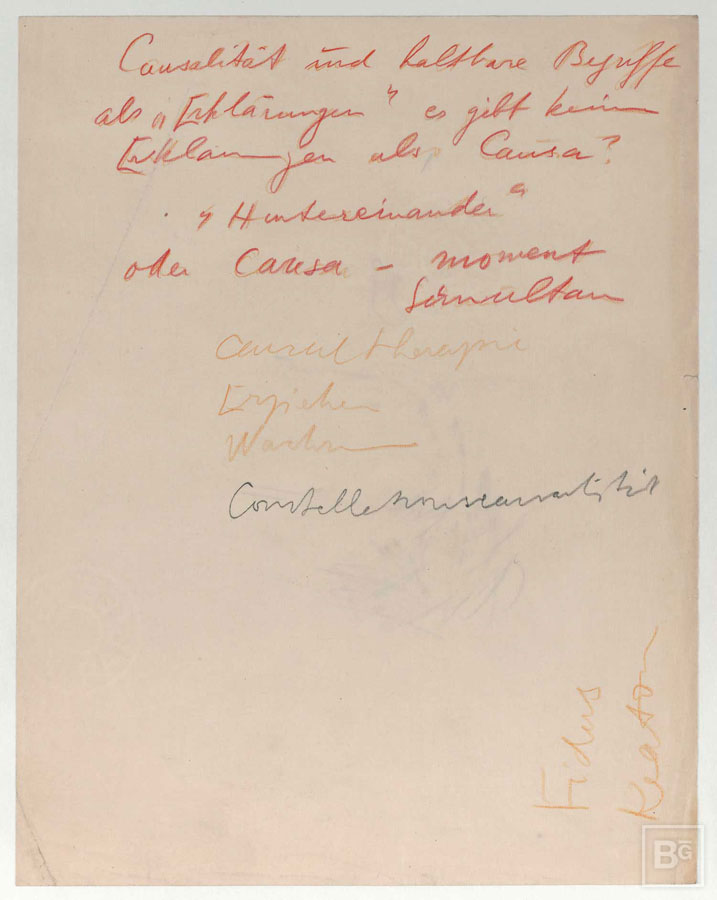 Causalität und haltbare Begriffe
als „Erklärungen" es gibt keine
Erklärungen als Causa?
„Hintereinander"
oder Causa – moment
Simultan
Causaltherapie
Erziehen
Constellationscausalität
Fidus
Keaton
BG